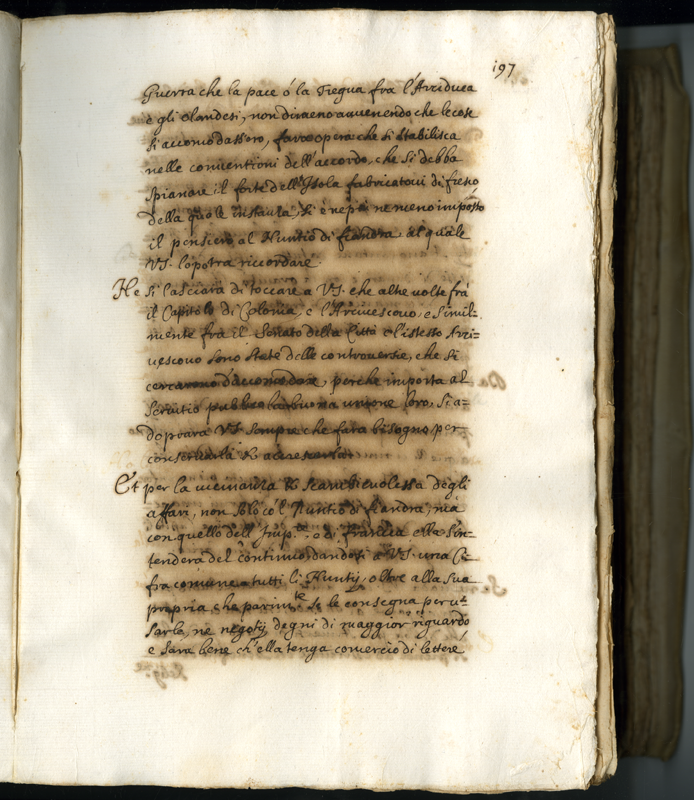 197
Guerra che la pace ó la Tregua fra l'Arciduca
è gli olandesi, non diraeno avvenendo che le cose
si accomodassero, fara opera che si stabilisca
nelle conventioni dell'accordo, che si debba
spianare il forte dell'Isola fabricatovi di fresco
della quale instanza, si è nemeno imposto
il pensiero al Nuntio di fiandra, al quale
VS. lo potra riccordare
Ne si lasciara di toccare a VS. che altre volte frà
il Capitolo di Colonia, e l'Arcivescovo, e simil-
mente fra il Senato della Città e l'istesso Arci-
vescovo sono state delle controversie, che si
cercarono d'accomodare, perche importa al
servitio pubblico la buona unione loro, si a-
doprara VS. sempre che fara bisogno per
conservarla & accrescerla
Et per la vicinanza & scambievolezza degli
affari, non solo col Nuntio di fiandra, mà
con quello dell'Imp.re e di francia ella s'in-
tenderà del continuo, dandosi a VS. una Ci-
fra comune a tutti li Nuntij, oltre alla sua
propria, che parim.te se le consegna per u-
sarla, ne negotij degni di maggior riguardo
e sara bene ch'ella tenga comercio di lettere